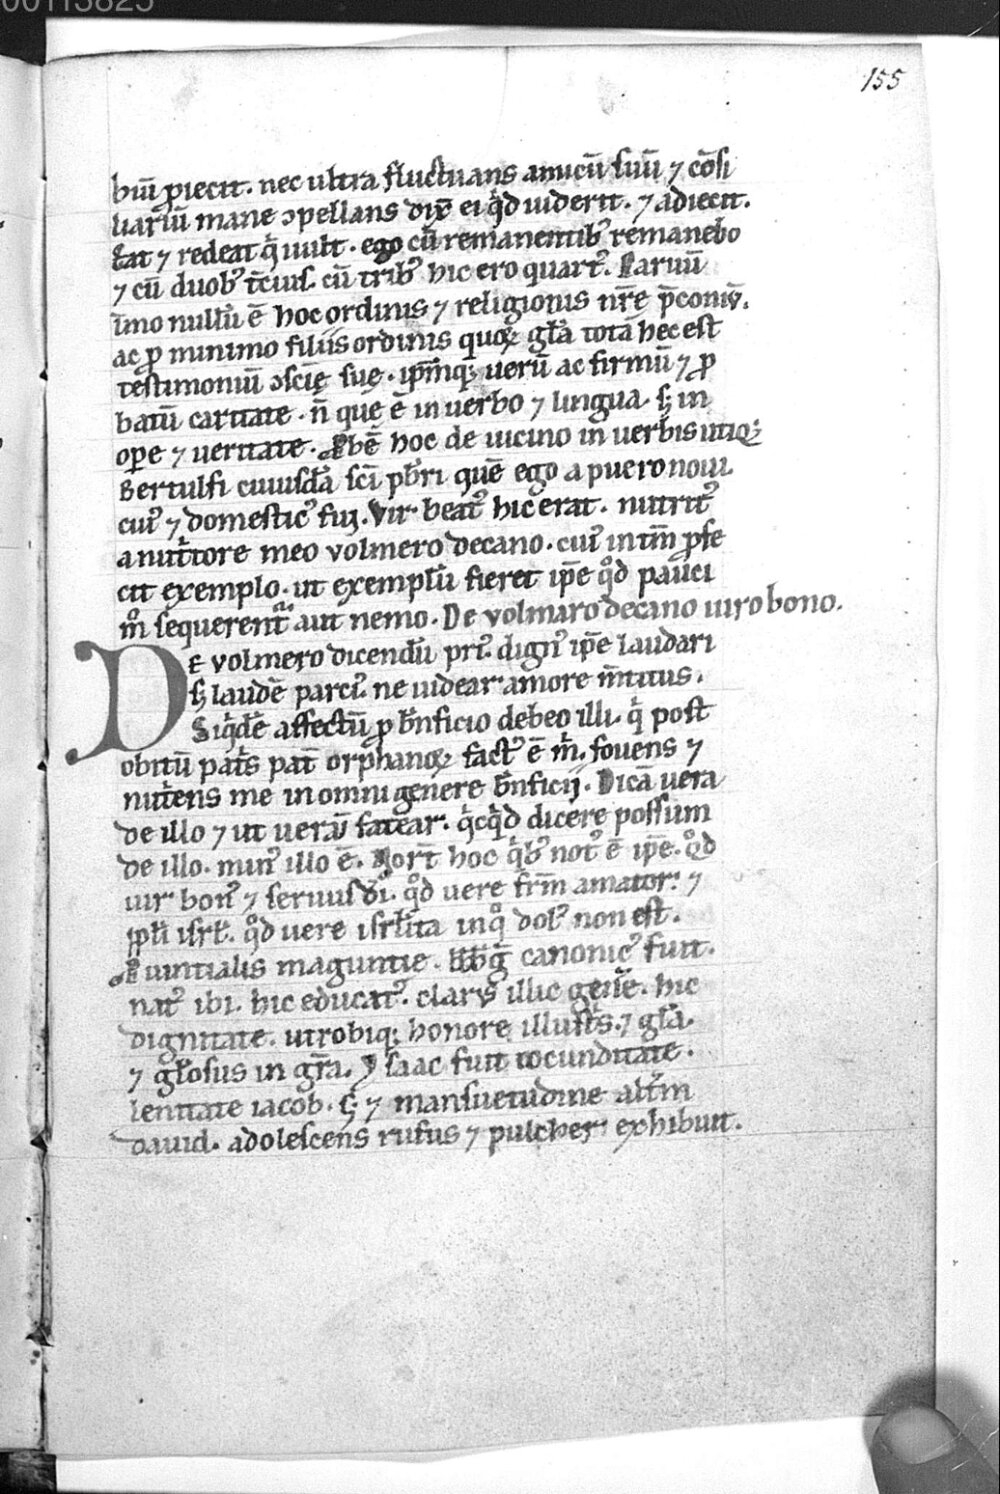 00113825
155
biū ꝓiecit. nec ultra fluctuans amicū suū ⁊ cōsi
liariū mane ɔpellans dix̄ ei qͥd uiderit. ⁊ adiecit.
Eat ⁊ redeat qͥ uult. ego cū remanentibꝰ remanebo
⁊ cū duobꝰ t̄ciusꝰ. cū tribꝰ hic ero quartꝰ. Paruū
īmo nullū ē hoc ordinis ⁊ religionis nr̄e p̄coniū.
ac ꝓ minimo filiis ordinis quoꝝ gl̄a tota hec est
testimoniū ɔsciē sue. ip̄mqꝫ uerū ac firmū ⁊ ꝓ
batū caritate. n̄ que ē in uerbo ⁊ lingua. sꝫ in
ope ⁊ ueritate. ꝓbē hoc de uicino in uerbis utiqꝫ
Bertulfi cuiusdā sc̄i pb̄ri quē ego a puero noui.
cuiꝰ ⁊ domesticꝰ fui. Vir beatꝰ hic erat. nutritꝰ
a nutͥtore meo volmero decano. cuiꝰ in tm̄ ꝓfe
cit exemplo. ut exemplū fieret ip̄e qͦd pauci
mͦ sequerent̄ aut nemo. De volmaro decano uiro bono.
De volmero dicendū priꝰ. dignꝰ ip̄e laudari
sꝫ laudē parciꝰ. ne uidear amore m̄titus.
Siqͥdē affectū ꝓ bn̄ficio debeo illi. qͥ post
obitū patͥs pat̄ orphanoꝝ factꝰ ē mͥ. fouens ⁊
nutͥens me in omni genere bn̄ficii. Dicā uera
de illo ⁊ ut uerū fatear. qͥcqͥd dicere possum
de illo. minꝰ illo ē. Nort̄ hoc qͥbꝰ notꝰ ē ip̄e. qͦd
uir bonꝰ ⁊ seruus dī. qͦd uere fr̄m amator. ⁊
ip̄li isrl̄. qͦd uere isrl̄ita in qͦ dolꝰ non est.
uintialis maguntie. canonicꝰ fuit.
natꝰ ibi. hic educatꝰ. clarꝰ illic gen̄e. hic
dignitate. utrobiqꝫ honore illustͥs. ⁊ gl̄a.
⁊ gl̄osus in gr̄a. Ysaac fuit iocunditate.
lenitate iacob. sꝫ ⁊ mansuetudine alt̄m
dauid. adolescens rufus ⁊ pulcher exhibuit.